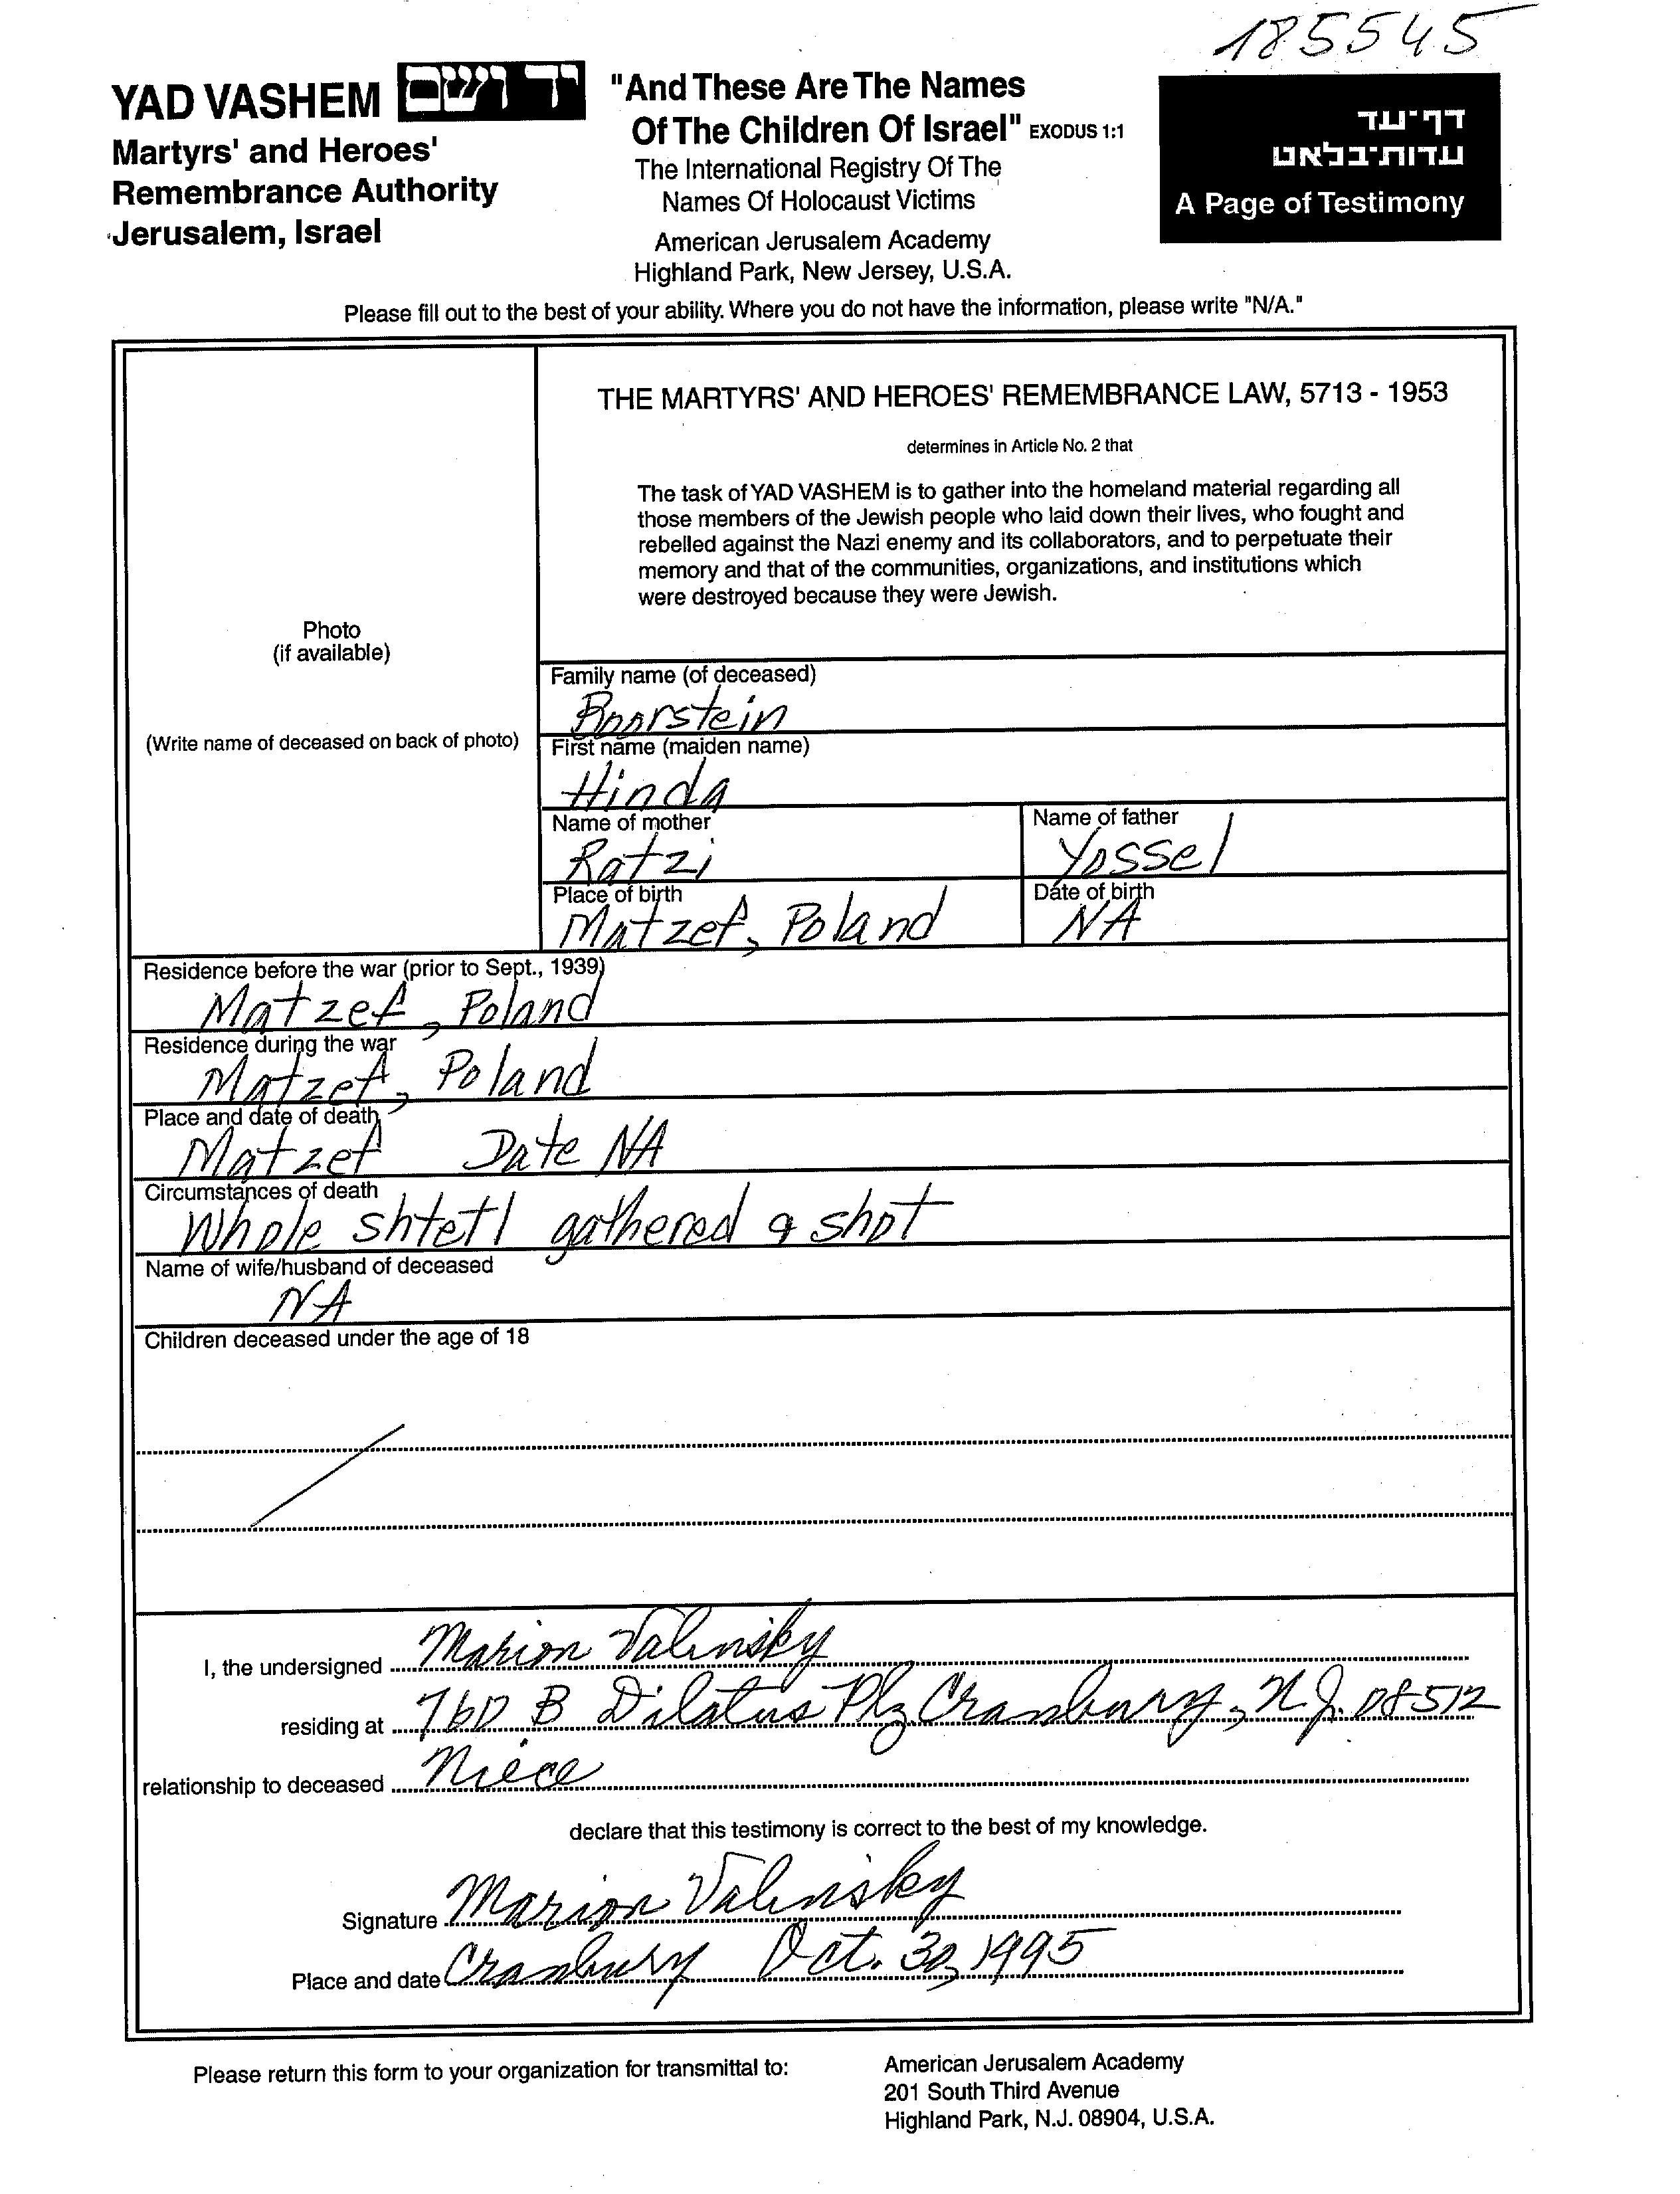 185545
YAD VASHEM יד ושם
Martyrs' and Heroes'
Remembrance Authority
Jerusalem, Israel
"And These Are The Names
Of The Children Of Israel" EXODUS 1:1
The International Registry Of The
Names Of Holocaust Victims
American Jerusalem Academy
Highland Park, New Jersey, U.S.A.
דף־עד
עדות־בלאט
A Page of Testimony
Please fill out to the best of your ability. Where you do not have the information, please write "N/A."
Photo
(if available)
(Write name of deceased on back of photo)
THE MARTYRS' AND HEROES' REMEMBRANCE LAW, 5713 - 1953
determines in Article No. 2 that
The task of YAD VASHEM is to gather into the homeland material regarding all
those members of the Jewish people who laid down their lives, who fought and
rebelled against the Nazi enemy and its collaborators, and to perpetuate their
memory and that of the communities, organizations, and institutions which
were destroyed because they were Jewish.
Family name (of deceased)
Boorstein
First name (maiden name)
Hinda
Name of mother
Ratzi
Name of father
Yossel
Place of birth
Matzef, Poland
Date of birth
NA
Residence before the war (prior to Sept., 1939)
Matzef, Poland
Residence during the war
Matzef, Poland
Place and date of death
Matzef Date NA
Circumstances of death
Whole shtetl gathered & shot
Name of wife/husband of deceased
NA
Children deceased under the age of 18
I, the undersigned Marion Valinsky
residing at 760 B Dilatus Plz Cranbury, N.J. 08512
relationship to deceased Niece
declare that this testimony is correct to the best of my knowledge.
Signature Marion Valinsky
Place and date Cranbury Oct. 30, 1995
Please return this form to your organization for transmittal to:
American Jerusalem Academy
201 South Third Avenue
Highland Park, N.J. 08904, U.S.A.